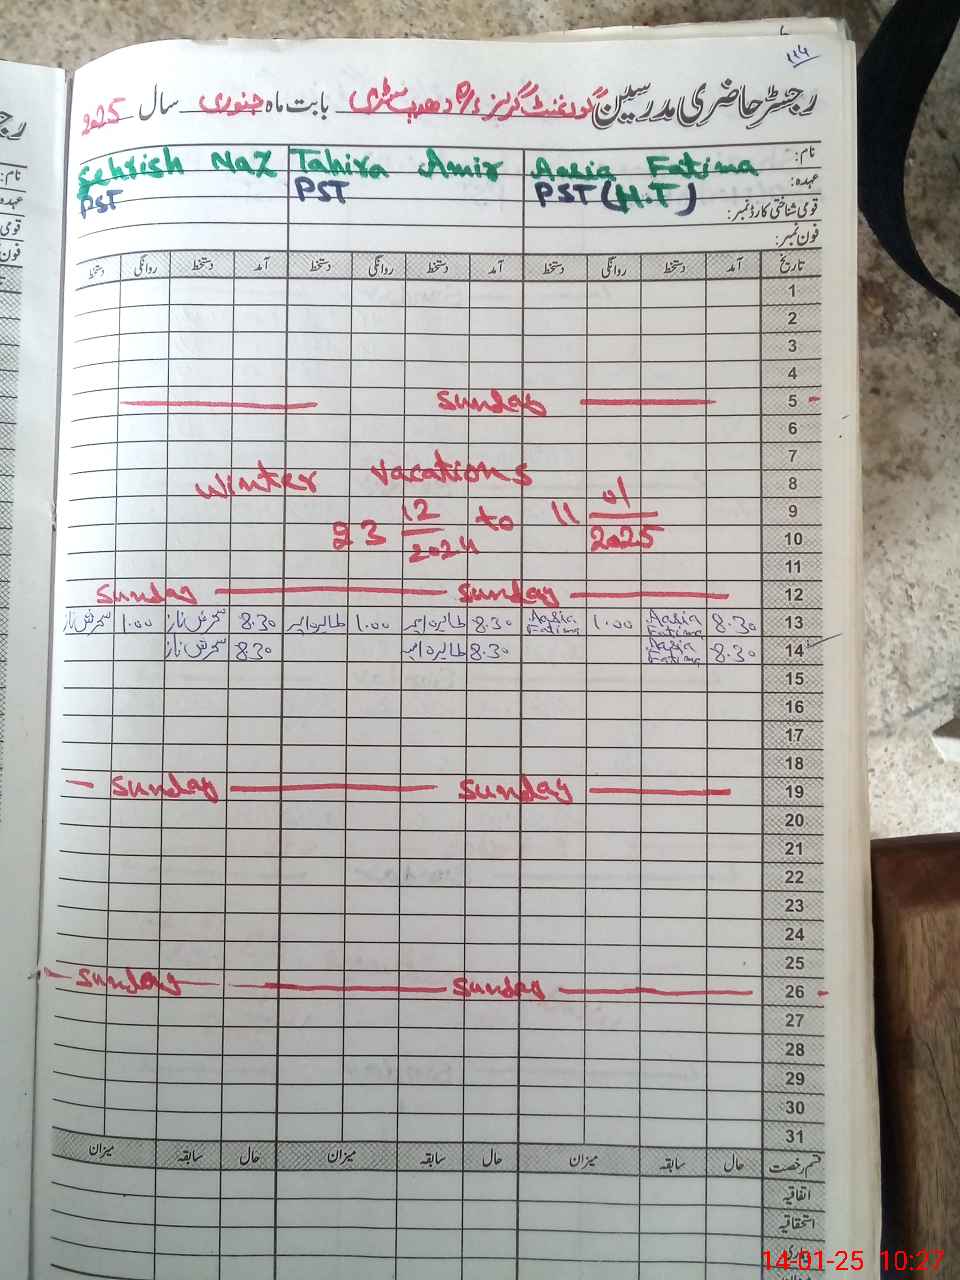 114
رجسٹر حاضری مدرسین گورنمنٹ گرلز بابت ماہ جنوری سال 2025
نام: Aasia Fatima Tahira Amir Sehrish Naz
عہدہ: PST (H.T) PST PST
قومی شناختی کارڈ نمبر:
فون نمبر:
تاریخ آمد دستخط روانگی دستخط آمد دستخط روانگی دستخط آمد دستخط روانگی دستخط
1
2
3
4
5 Sunday
6
7
Winter Vacations
8
9
23 12/2024 to 11 01/2025
10
11
12 Sunday Sunday
13 8.30 Aasia Fatima 1.00 Aasia Fatima 8.30 طاہرہ امیر 1.00 طاہرہ امیر 8.30 سحرش ناز 1.00 سحرش ناز
14 8.30 Aasia Fatima 8.30 طاہرہ امیر 8.30 سحرش ناز
15
16
17
18
19 Sunday Sunday
20
21
22
23
24
25
26 Sunday Sunday
27
28
29
30
31
قسم رخصت حال سابقہ میزان حال سابقہ میزان حال سابقہ میزان
اتفاقیہ
استحقاقیہ
14-01-25 10:27